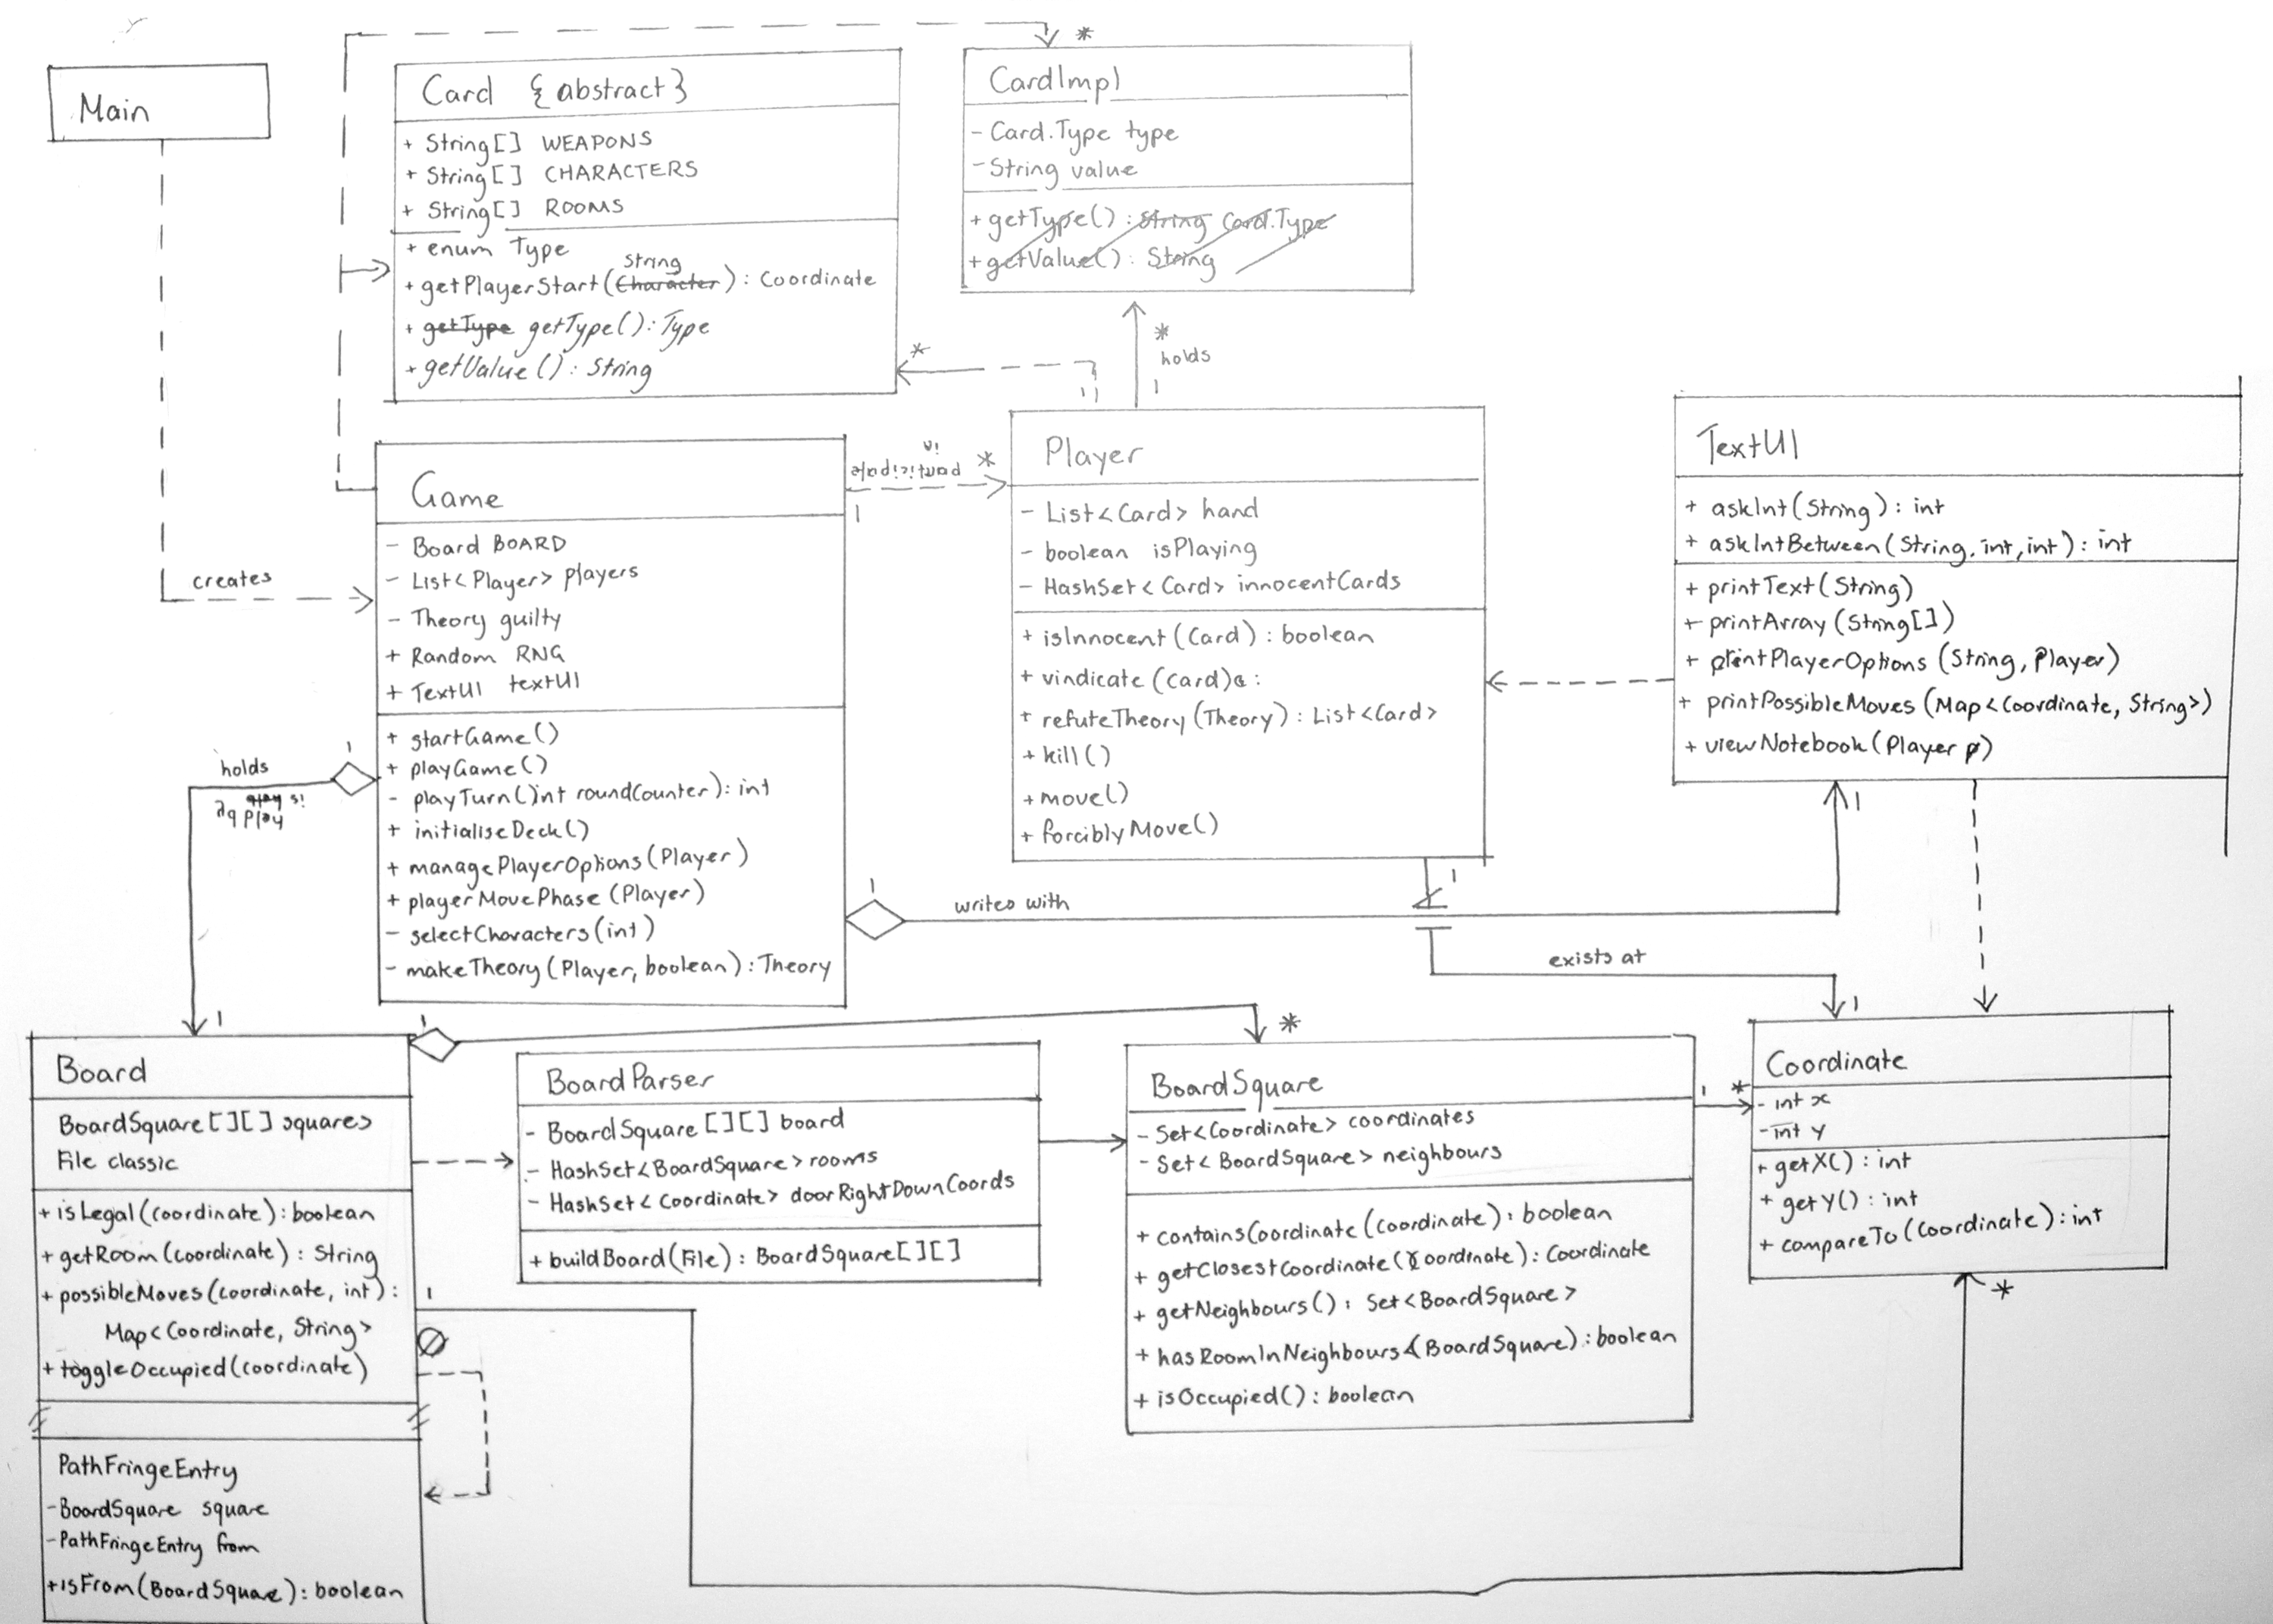 *
Main
Card {abstract}
+ String[] WEAPONS
+ String[] CHARACTERS
+ String[] ROOMS
+ enum Type
String
+ getPlayerStart(Character) : Coordinate
+ getType getType() : Type
+ getValue() : String
CardImpl
- Card.Type type
- String value
+ getType() : String Card.Type
+ getValue() : String
*
holds
1
*
creates
Game
- Board BOARD
- List<Player> players
- Theory guilty
+ Random RNG
+ TextUI textUI
+ startGame()
+ playGame()
- playTurn()int roundCounter) : int
+ initialiseDeck()
+ managePlayerOptions(Player)
+ playerMovePhase(Player)
- selectCharacters(int)
- makeTheory(Player, boolean) : Theory
*
1
Player
- List<Card> hand
- boolean isPlaying
- HashSet<Card> innocentCards
+ isInnocent(Card) : boolean
+ vindicate(Card) :
+ refuteTheory(Theory) : List<Card>
+ kill()
+ move()
+ forciblyMove()
TextUI
+ askInt(String) : int
+ askIntBetween(String, int, int) : int
+ printText(String)
+ printArray(String[])
+ printPlayerOptions(String, Player)
+ printPossibleMoves(Map<Coordinate, String>)
+ viewNotebook(Player p)
1
holds
is
held by
1
1
writes with
1
1
exists at
1
1
*
Board
BoardSquare[][] squares
File classic
+ isLegal(Coordinate) : boolean
+ getRoom(Coordinate) : String
+ possibleMoves(Coordinate, int) :
Map<Coordinate, String>
+ toggleOccupied(Coordinate)
1
PathFringeEntry
- BoardSquare square
- PathFringeEntry from
+ isFrom(BoardSquare) : boolean
BoardParser
- BoardSquare[][] board
- HashSet<BoardSquare> rooms
- HashSet<Coordinate> doorRightDownCoords
+ buildBoard(File) : BoardSquare[][]
BoardSquare
- Set<Coordinate> coordinates
- Set<BoardSquare> neighbours
+ containsCoordinate(Coordinate) : boolean
+ getClosestCoordinate(Coordinate) : Coordinate
+ getNeighbours() : Set<BoardSquare>
+ hasRoomInNeighbours(BoardSquare) : boolean
+ isOccupied() : boolean
1
*
Coordinate
- int x
- int y
+ getX() : int
+ getY() : int
+ compareTo(Coordinate) : int
*